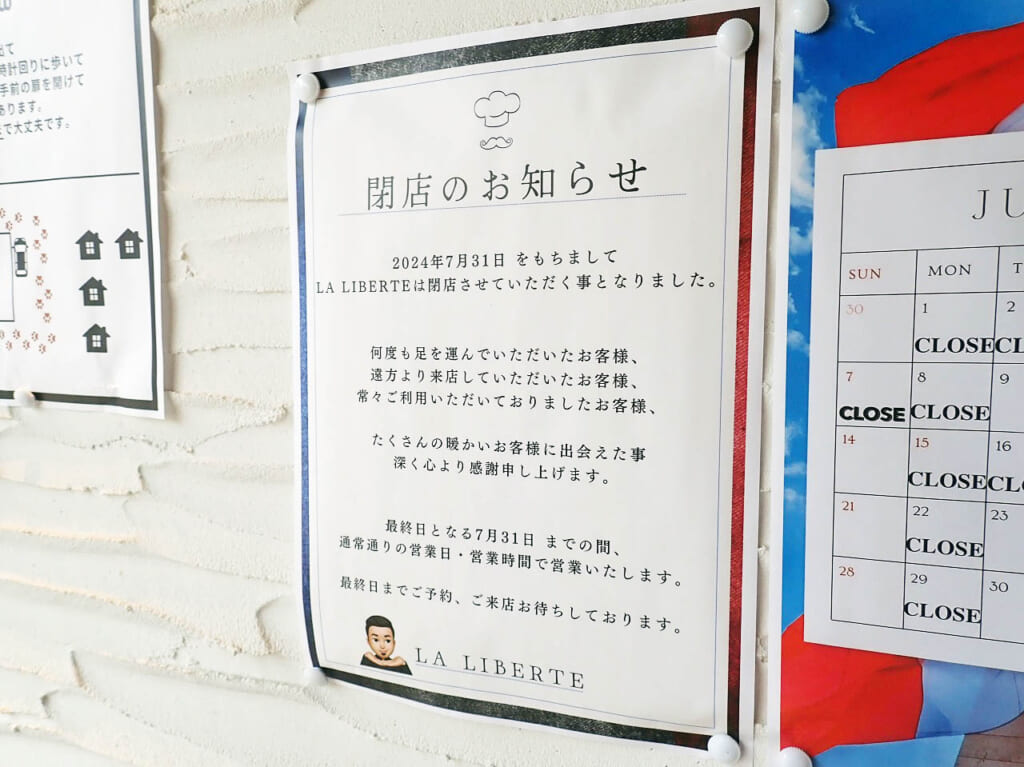 出て
時計回りに歩いて
手前の扉を開けて
あります。
で大丈夫です。
閉店のお知らせ
2024年7月31日 をもちまして
LA LIBERTEは閉店させていただく事となりました。
何度も足を運んでいただいたお客様、
遠方より来店していただいたお客様、
常々ご利用いただいておりましたお客様、
たくさんの暖かいお客様に出会えた事
深く心より感謝申し上げます。
最終日となる7月31日 までの間、
通常通りの営業日・営業時間で営業いたします。
最終日までご予約、ご来店お待ちしております。
LA LIBERTE
JU
SUN MON T
30 1 2
CLOSE CL
7 8 9
CLOSE CLOSE
14 15 16
CLOSE CL
21 22 23
CLOSE
28 29 30
CLOSE